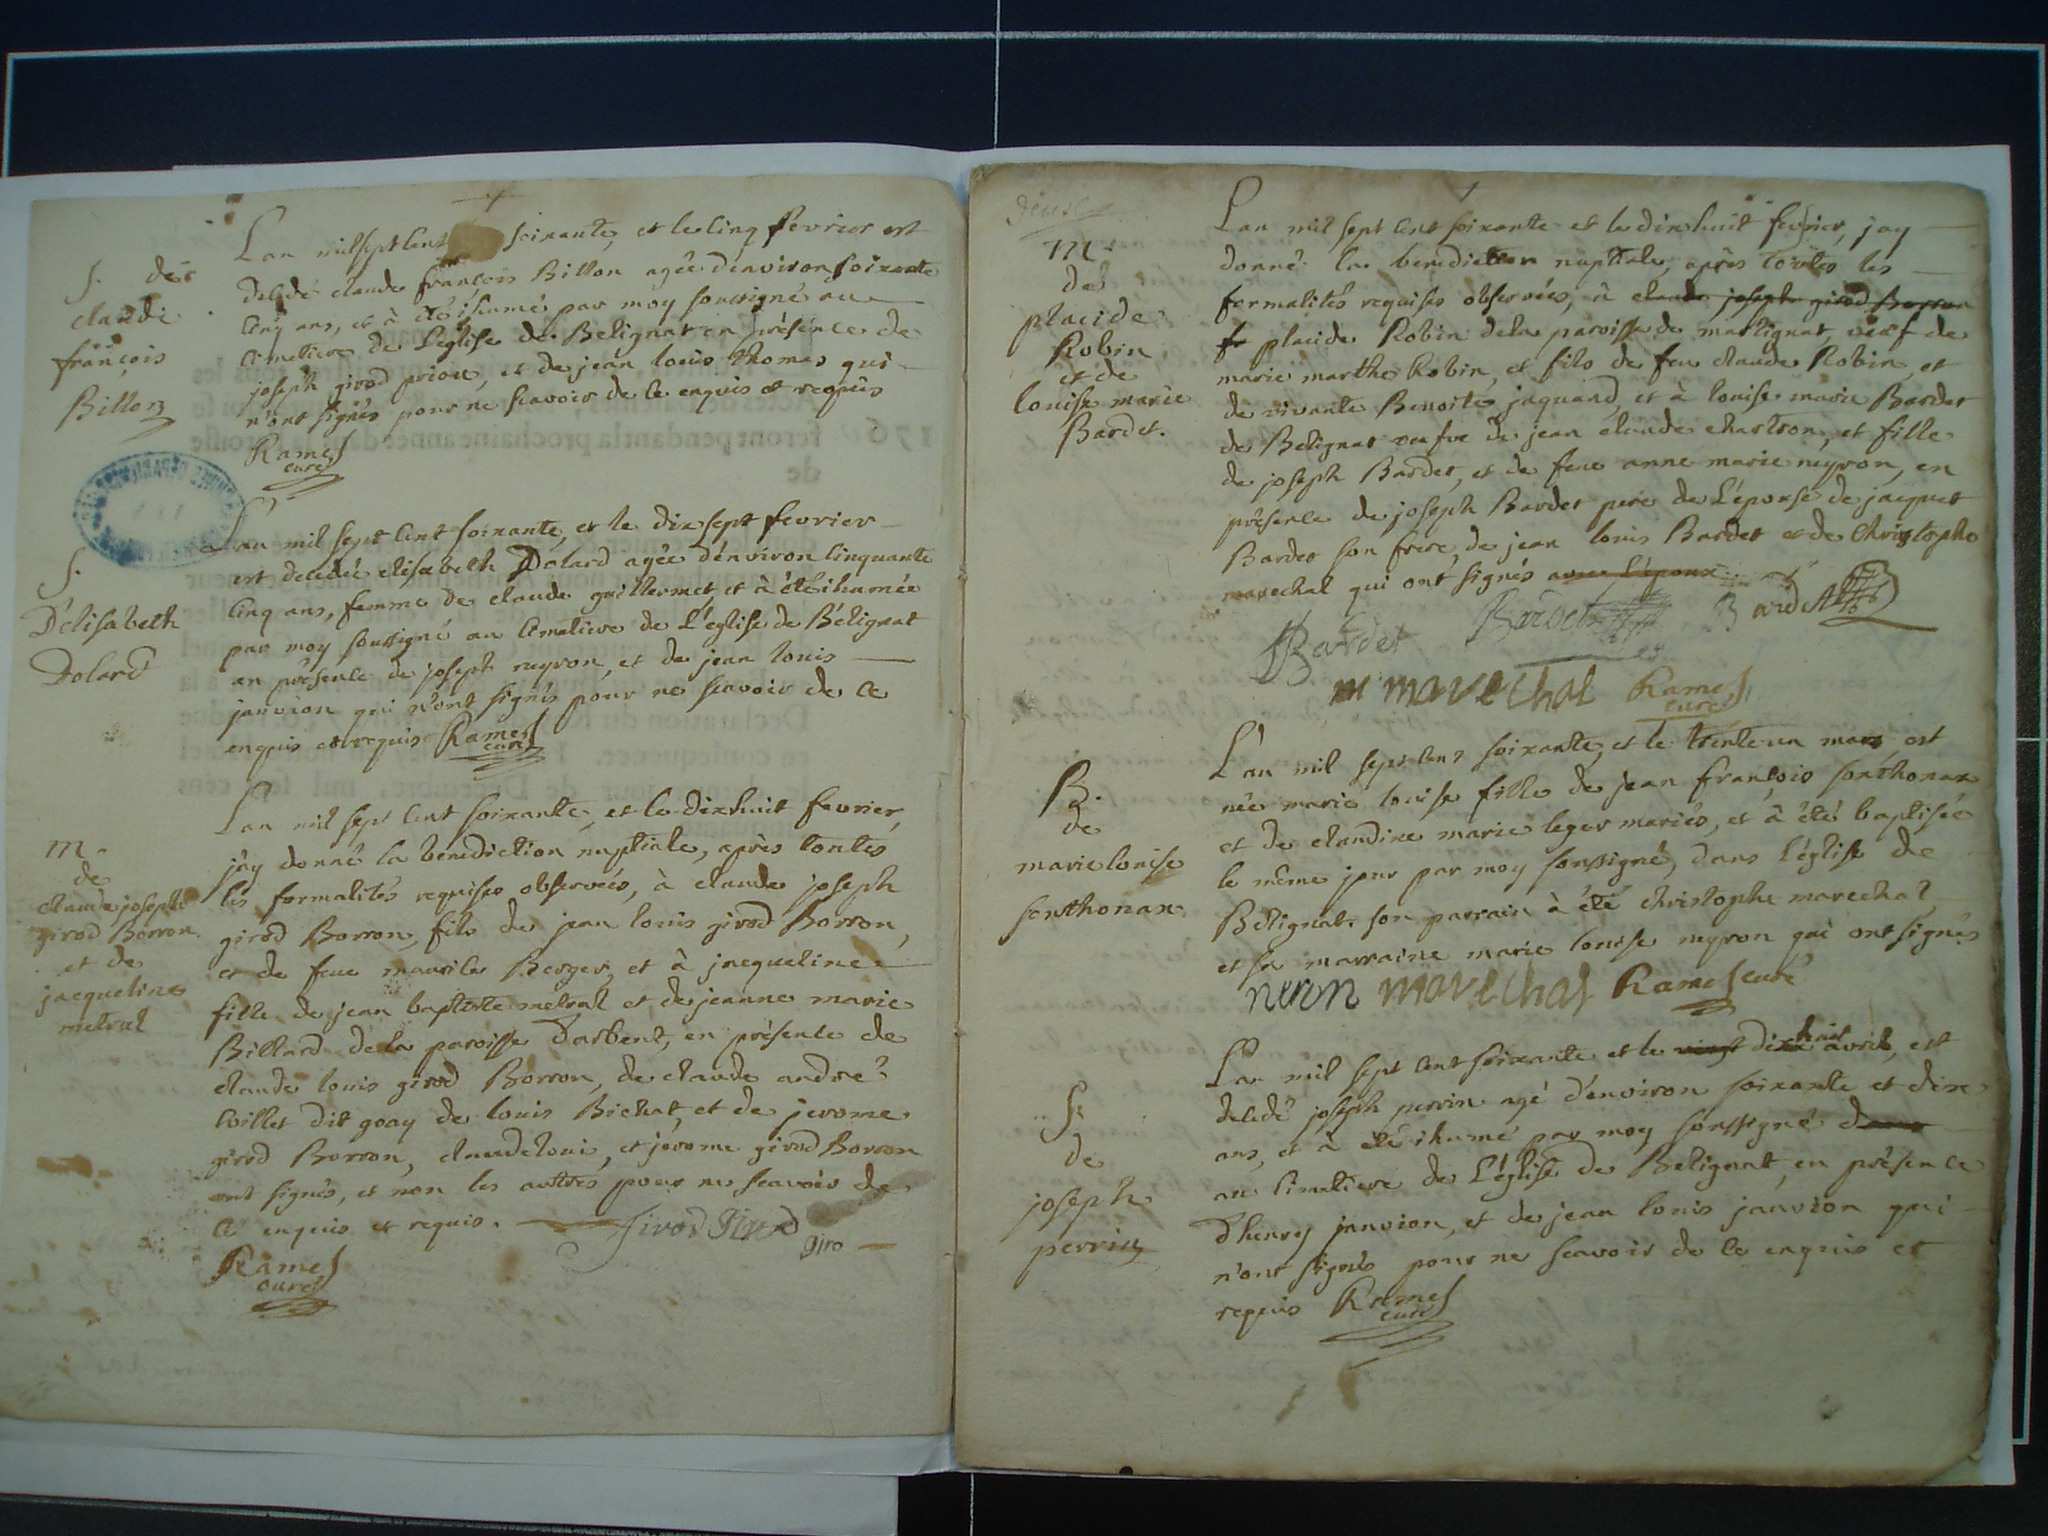 S. de
claude
françois
Billon
L'an mil sept cent soixante, et le cinq fevrier est
decedé claude françois Billon agée d'environ soixante
cinq ans, et à été ihumé par moy soussigné au
cimetiere de L'eglise de Belignat en présence de
joseph girod prion, et de jean louis thomas qui
n'ont signés pour ne scavoir de ce enquis et requis
Ramel
curé
S.
D'élisabeth
Dolard
L'an mil sept cent soixante, et le dix sept fevrier
est decedée elisabeth Dolard agée d'environ cinquante
cinq ans, femme de claude guillermet, et à été ihumée
par moy soussigné au cimetiere de L'église de Bélignat
en présence de joseph neyron, et de jean louis
janvion qui n'ont signés pour ne scavoir de ce
enquis et requis Ramel
curé
M.
de
claude joseph
girod Borron
et de
jacqueline
metral
L'an mil sept cent soixante, et le dixhuit fevrier,
j'ay donné la benediction nuptiale, après toutes
les formalités requises observées, à claude joseph
girod Borron, fils de jean louis girod Borron,
et de feue maurile Berger, et à jacqueline
fille de jean baptiste metral et de jeanne marie
Billard de la paroisse d'arbent, en présence de
claude louis girod Borron, de claude andre
Collet dit goay de louis Bichat, et de jerome
girod Borron, claude loui, et jerome girod Borron
ont signés, et non les autres pour ne scavoir de
ce enquis et requis. Girod Girod
giro
Ramel
curé
M.
de
placide
Robin
et de
louise marie
Bardet.
L'an mil sept cent soixante et le dixhuit fevrier, jay
donné la benediction nuptiale, après toutes les
formalités requises observées, à claude joseph girod Borron
placide Robin de la paroisse de martignat, veuf de
marie marthe Robin, et fils de feu claude Robin, et
de vivante Benoite jaquand, et à louise marie Bardet
de Belignat veufve de jean claude chartron, et fille
de joseph Bardet, et de feue anne marie neyron, en
présence de joseph Bardet pere de L'épouse de jacquet
Bardet son frere, de jean louis Bardet et de Christophe
marechal qui ont signés avec l'époux
Bardet Bardet Bardet
m marechal Ramel
curé
B.
de
marie louise
sonthonax
L'an mil sept cent soixante, et le trente un mars est
née marie louise fille de jean françois sonthonax
et de claudine marie leger mariés, et à été baptisée
le même jour par moy soussigné, dans L'église de
Bélignat. son parrain à été christophe marechal
et sa marraine marie louise neyron qui ont signés
neron marechal Ramel curé
S.
de
joseph
perrin
L'an mil sept cent soixante et le vingt dixhuit avril, est
decedé joseph perrin agé d'environ soixante et dix
ans, et à été ihumé par moy soussigné dans
au cimetiere de L'église de Belignat, en présence
d'henry janvion, et de jean louis janvion qui
n'ont signés pour ne scavoir de ce enquis et
requis Ramel
curé